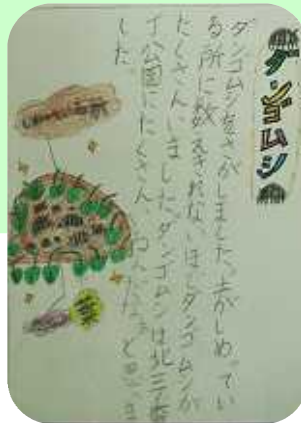 ダンゴムシ
ダンゴムシをさがしました。土がしめってい
る所に数えきれないほどダンゴムシが
たくさんいました。ダンゴムシは北三
イ公園にたくさん と思いま
した。
しめっている所
葉